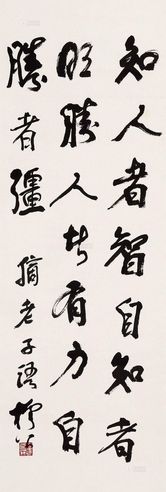 知人者智自知者
明勝人者有力自
勝者彊
摘老子語